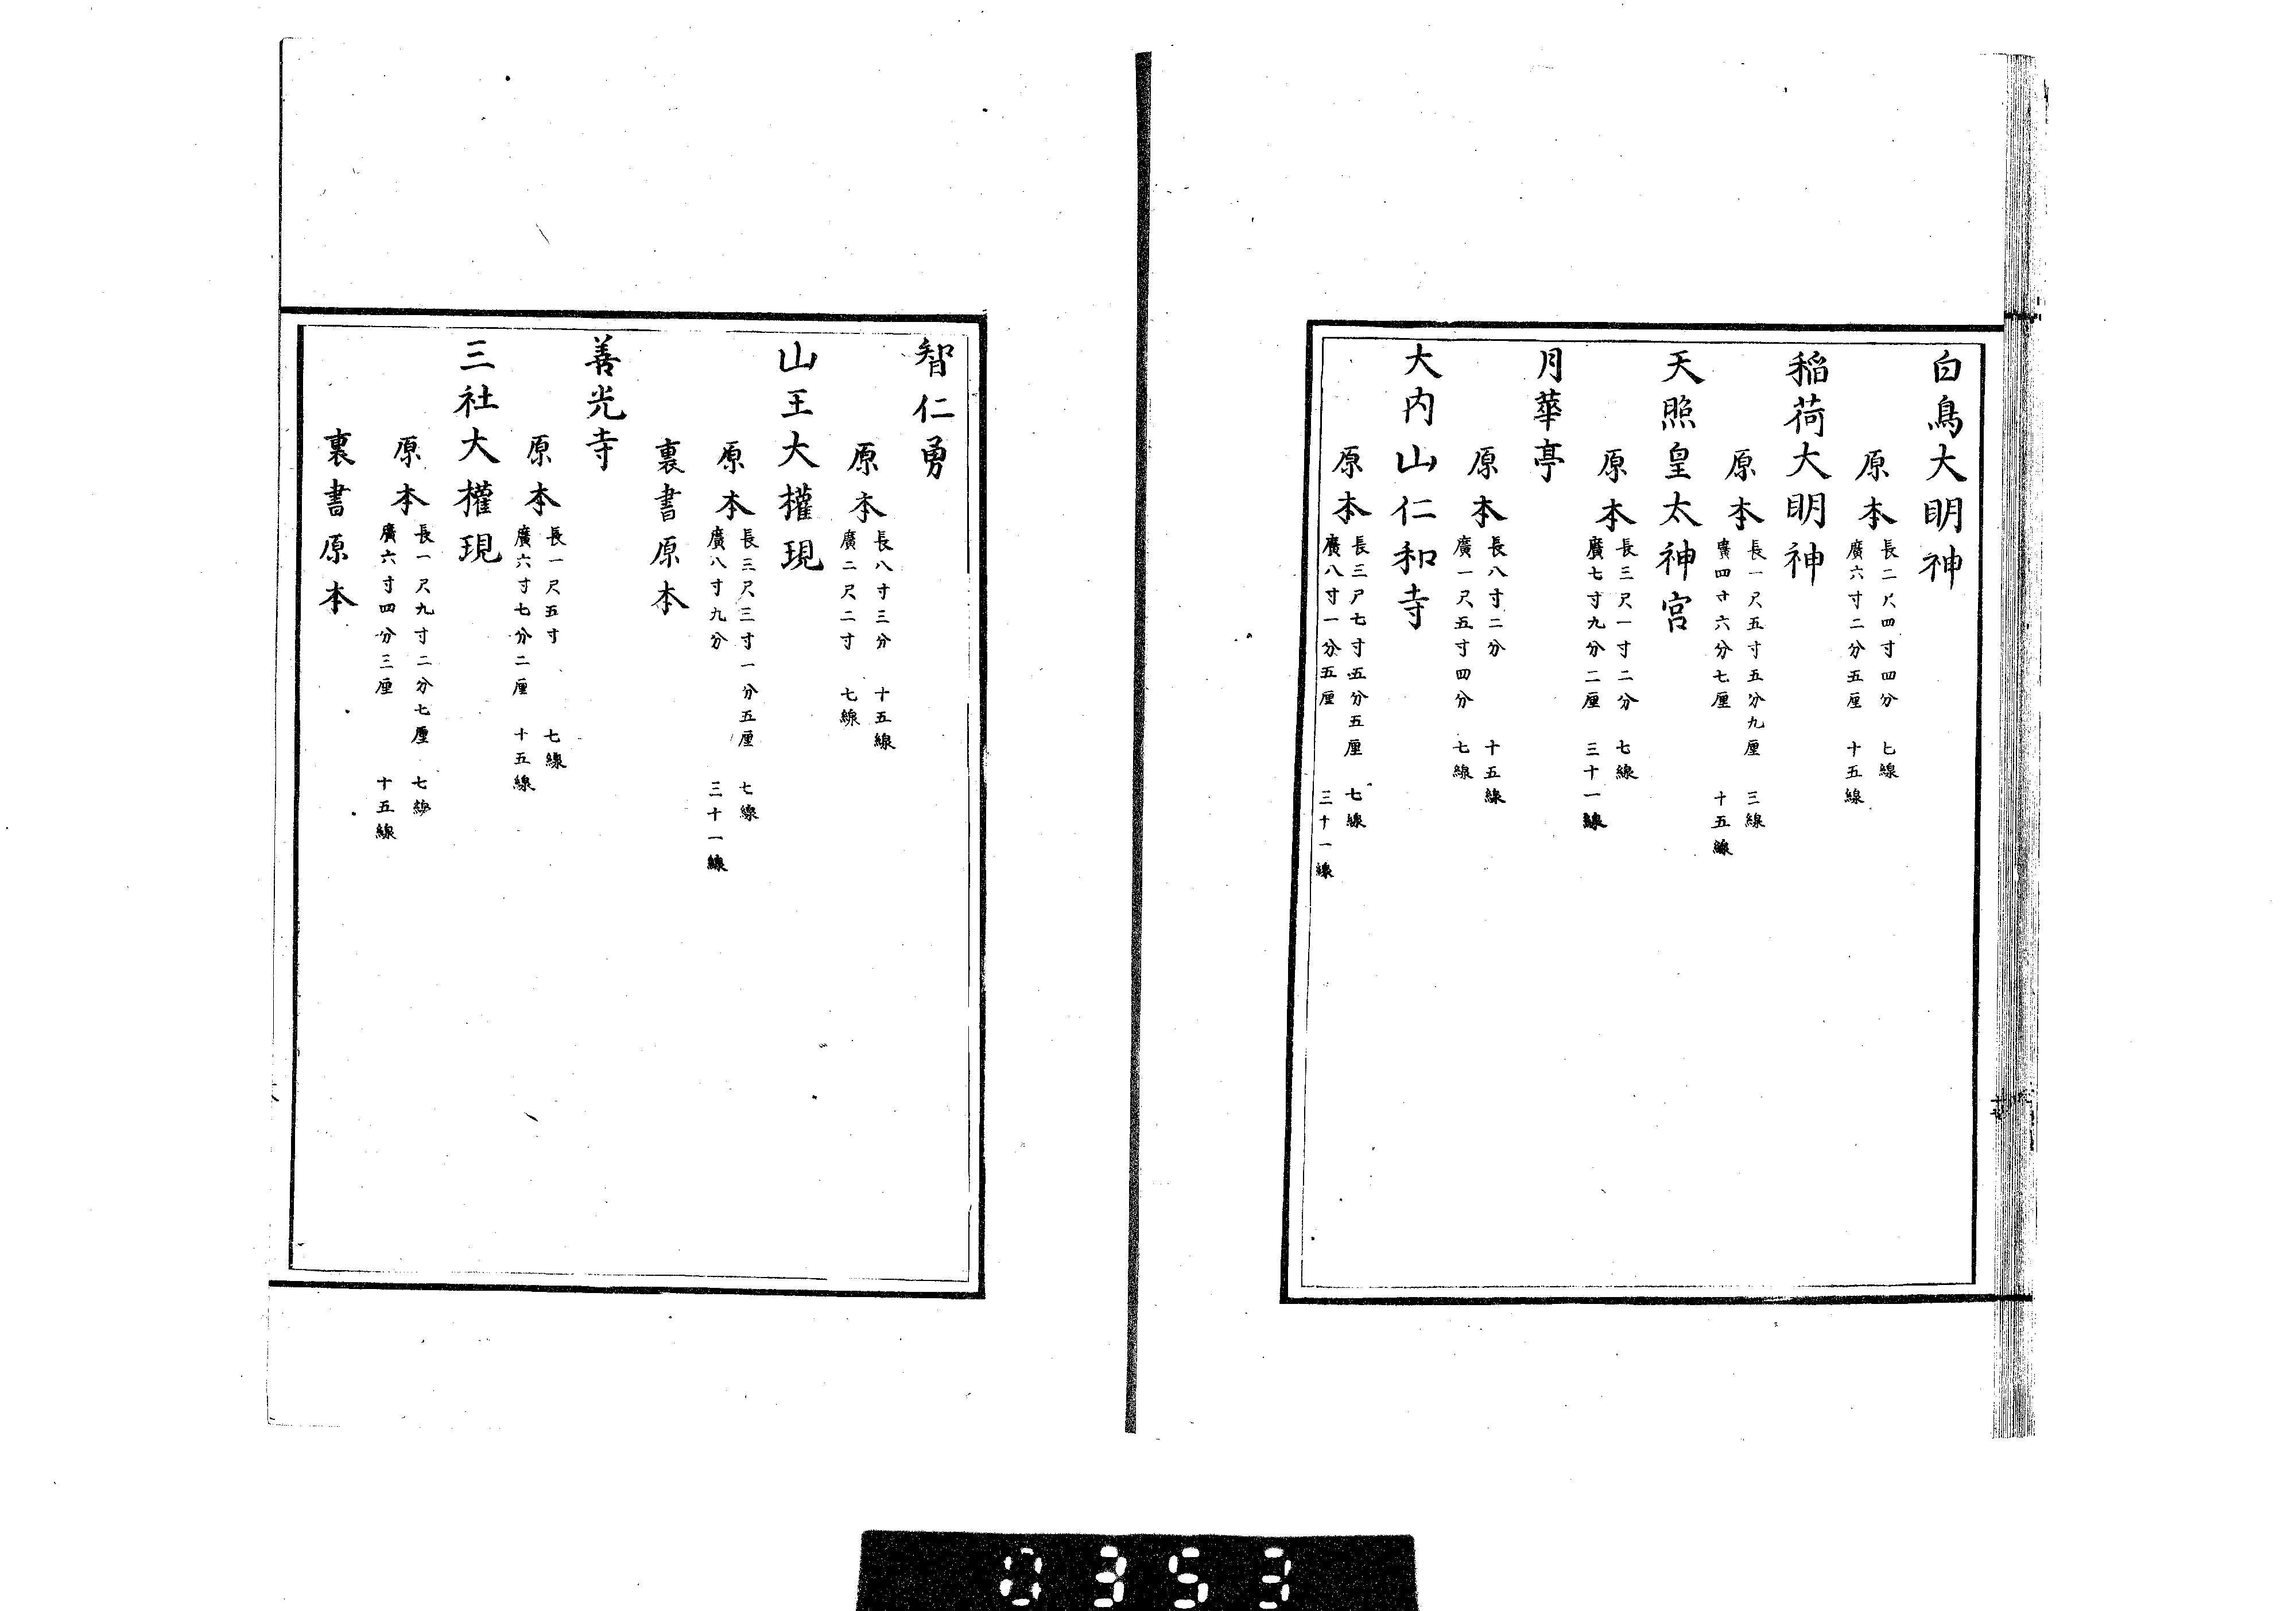 白鳥大明神
原本 長二尺四寸四分 七線
廣六寸二分五厘 十五線
稲荷大明神
原本 長一尺五寸五分九厘 三線
廣四寸六分七厘 十五線
天照皇太神宮
原本 長三尺一寸二分 七線
廣七寸九分二厘 三十一線
月華亭
原本 長八寸二分 十五線
廣一尺五寸四分 七線
大内山仁和寺
原本 長三尺七寸五分五厘 七線
廣八寸一分五厘 三十一線
智仁勇
原本 長八寸三分 十五線
廣二尺二寸 七線
山王大權現
原本 長三尺三寸一分五厘 七線
廣八寸九分 三十一線
裏書原本
善光寺
原本 長一尺五寸 七線
廣六寸七分二厘 十五線
三社大權現
原本 長一尺九寸二分七厘 七線
廣六寸四分三厘 十五線
裏書原本
0353